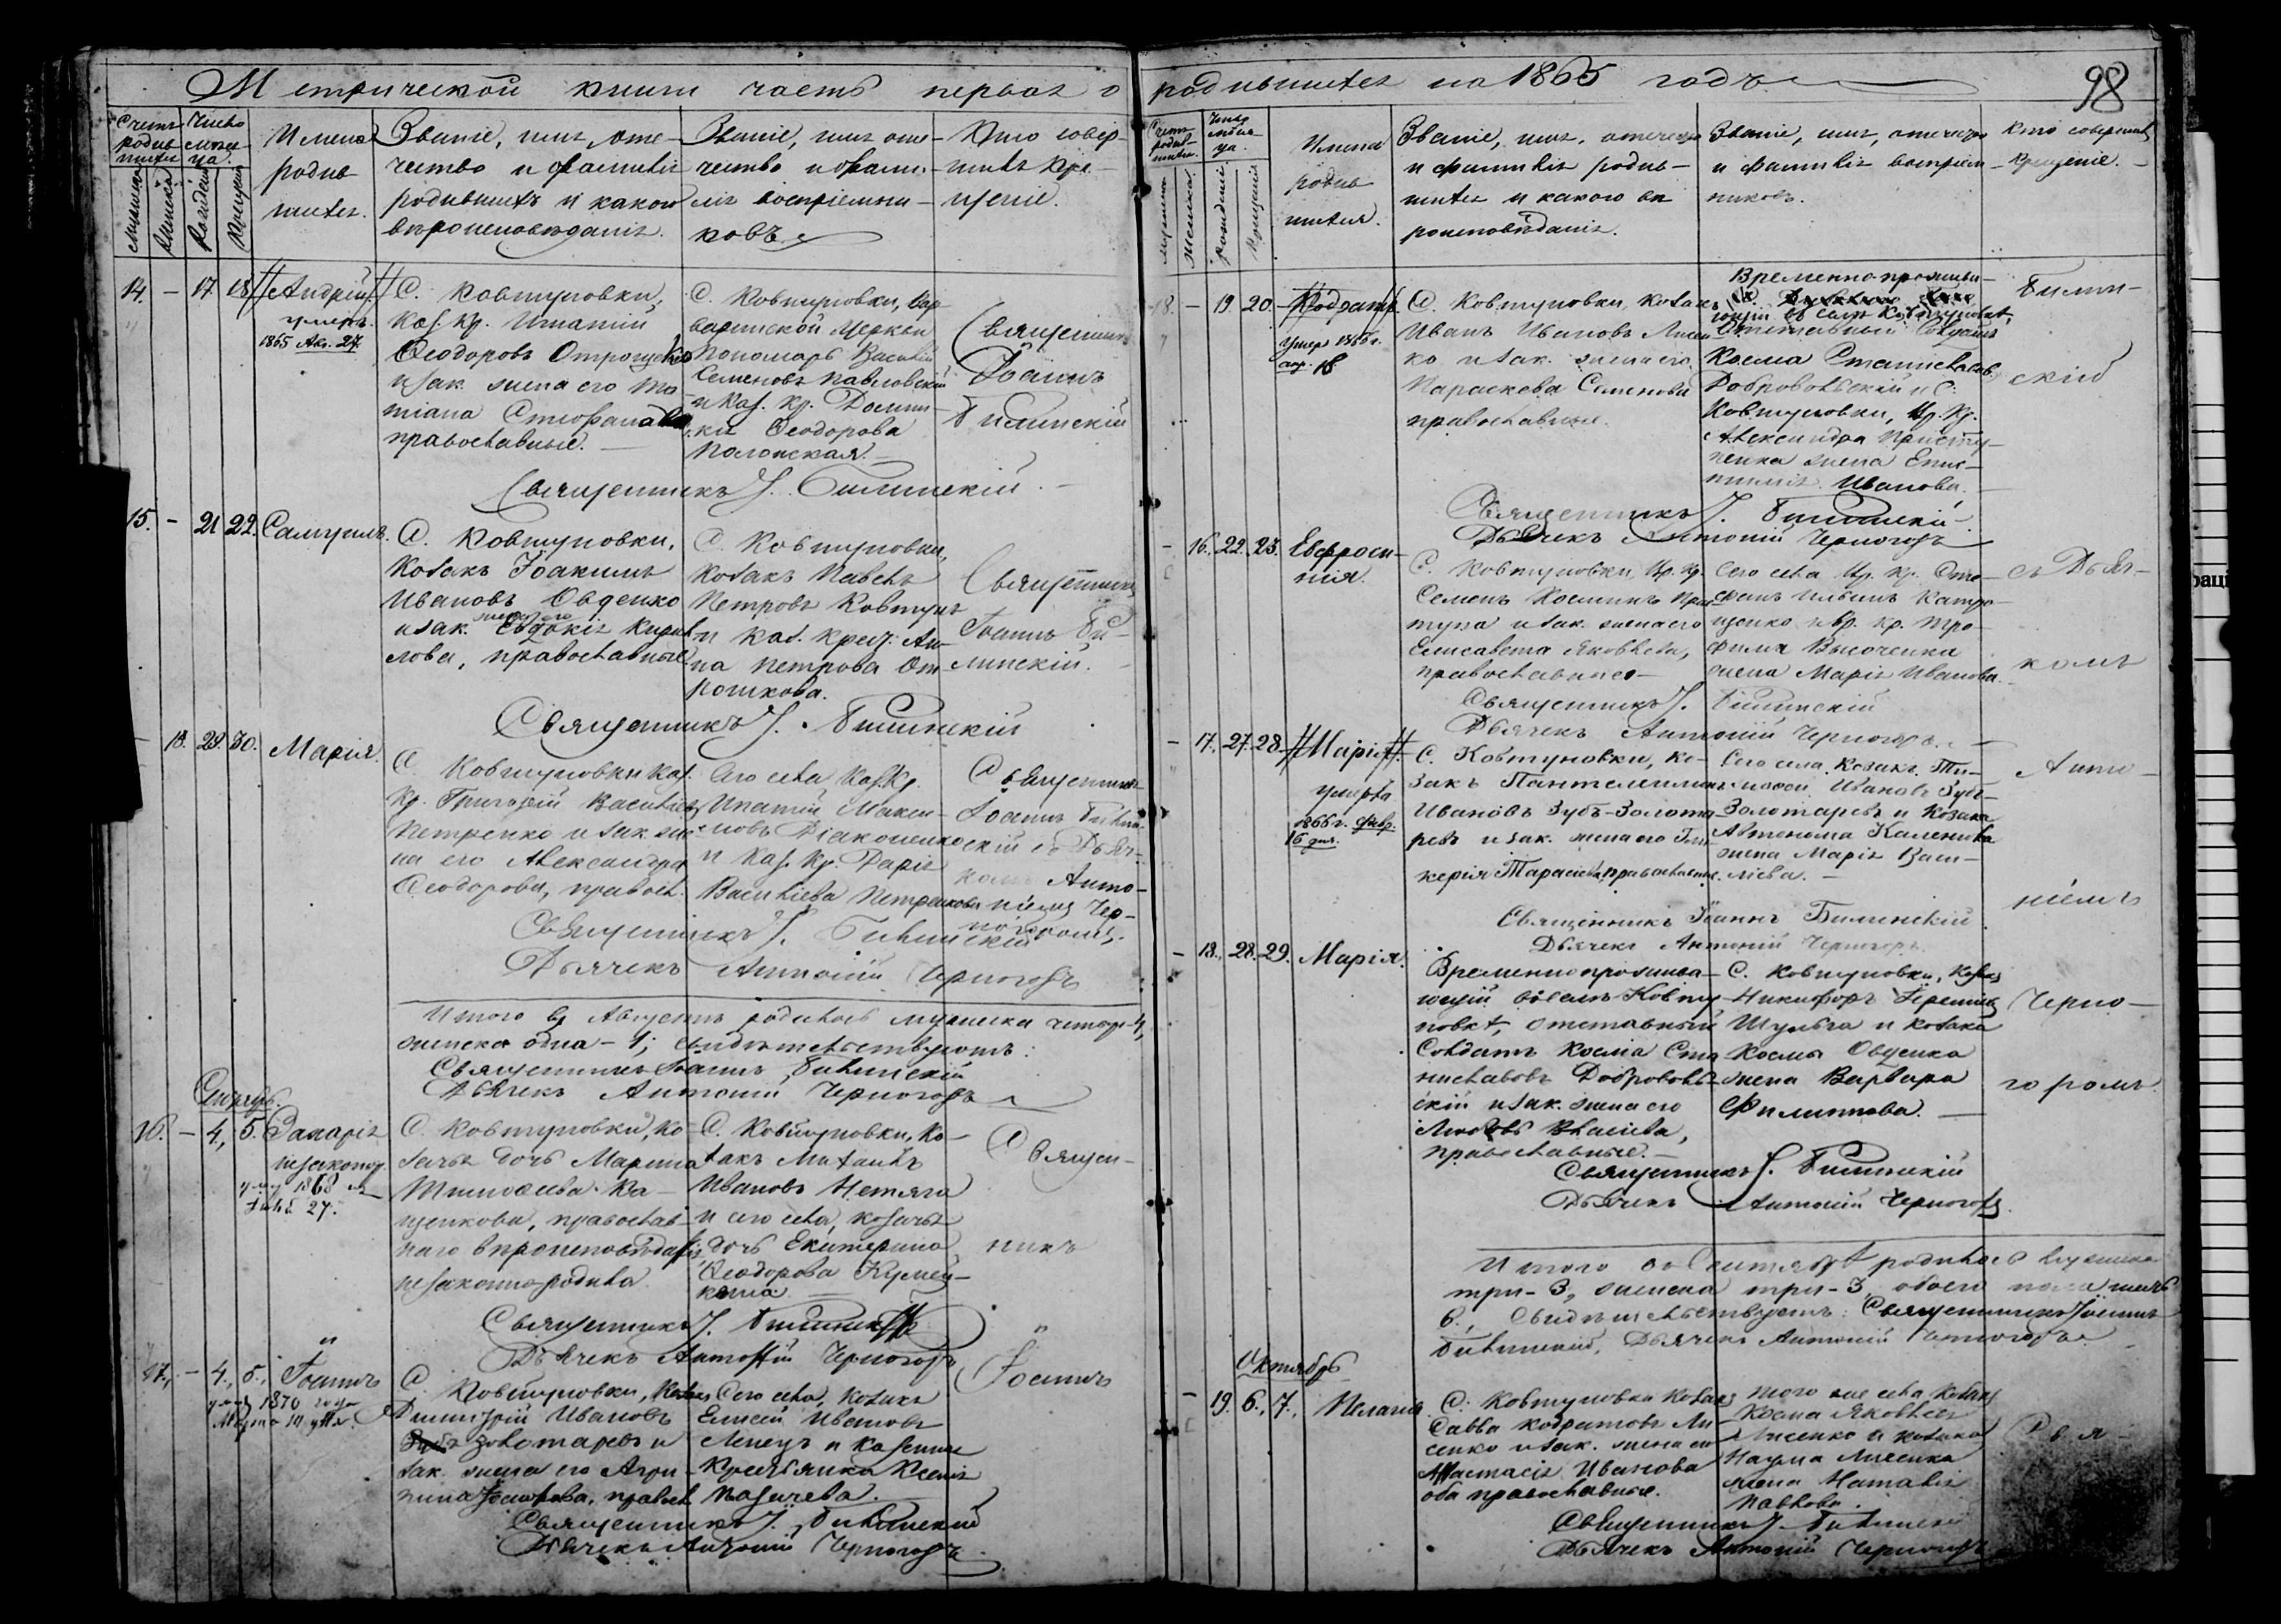 Метрической книги часть первая о родившихся на 1865 годъ
98
Счетъ родившихся
Число месяца
Имена родившихся.
Званіе, имя, отечество и фамилія родившихъ и какого вѣроисповѣданія.
Званіе, имя отечество и фамилія воспріемниковъ.
Кто совершилъ крещеніе.
14. – 17 18
Андрей
умеръ
1865 Авг. 27.
С. Ковтуновки,
Каз. Кр. Игнатій
Ѳеодоровъ
и зак. жена его Та
тіана Стефанова
православные.
С. Ковтуновки, Вар
варинской Церкви
Пономарь Василій
Семеновъ Павловскій
и Каз. Кр. Домни
ки Ѳеодорова
Полонская.
Священникъ
Іоаннъ
Билинскій
Священникъ І. Билинскій
15. – 21 22.
Самуилъ.
С. Ковтуновки,
Козакъ Іоакимъ
Ивановъ Овденко
и зак. жена его Евдокія Кирил
лова, православные
С. Ковтуновки,
Козакъ Павелъ
Петровъ Ковтунъ
и каз. крест. Ан
на Петрова От
рошкова.
Священникъ
Іоаннъ Би
линскій.
Священникъ І. Билинскій
29. 30.
Марія.
С. Ковтуновки Каз.
Кр. Григорій Васильевъ
Петренко и зак. же
на его Александра
Ѳеодорова, правосл.
Сего села Каз. Кр.
Игнатій Макси
мовъ Діаконенко
и Каз. Кр. Дарія
Василіева Петренкова
Священникъ
Іоаннъ Билин
скій съ Дьяч
комъ Анто
ніемъ Чер
ногоромъ.
Священникъ І. Билинскій
Дьячекъ Антоній Черногоръ
Итого въ Августѣ родилось мужеска четыре 4,
женска одна – 1; свидѣтельствуютъ:
Священникъ Іоаннъ Билинскій
Дьячекъ Антоній Черногоръ
16. – 4, 5.
Захарія
незаконор.
1868
27.
С. Ковтуновки, ко
зачья дочь Марина
Тимоѳеева Ка
щенкова, православ
наго вѣроисповѣданія
незаконно родила.
С. Ковтуновки, Ко
закъ Михаилъ
Ивановъ Нетяга
и сего села, козачья
дочь Екатерина
Ѳеодорова
Священ
никъ
Священникъ І. Билинскій
Дьячекъ Антоній Черногоръ
17, – 4, 5,
Іоаннъ
1870 года
Марта 14 дня.
С. Ковтуновки, Козакъ
Димитрій Ивановъ
Золотаревъ и
зак. жена его Агри
пина, правосл
Сего села, козакъ
Елисей Ивановъ
и Казенная
крестьянка Ксенія
Іоаннъ
Священникъ І. Билинскій
Дьячекъ Антоній Черногоръ
18. – 19 20
Кодратъ
умеръ 1866 г.
апр. 18
С. Ковтуновки, козакъ
Иванъ Ивановъ Лисен
ко и зак. жена его
Параскева Семенова
православные.
Временно прожива
ющій въ селѣ Ковтуновкѣ
Отставный Солдатъ
Косма Станиславовъ
Добровольскій и С.
Ковтуновки, Вр. Кр.
Александра
жена
Иванова.
Билин
скій
Священникъ І. Билинскій
Дьячекъ Антоній Черногоръ
– 16. 22. 23.
Евфроси
нія.
С. Ковтуновки, Вр. Кр.
Семенъ Косминъ
и зак. жена его
Елисавета Яковлева,
православные
Сего села Вр. Кр. Сте
фанъ Ильинъ
и Вр. Кр. Тро
фима Высоченка
жена Марія Иванова.
съ Дьяч
комъ
Священникъ І. Билинскій
Дьячекъ Антоній Черногоръ
– 17. 27. 28.
Марія.
умерла
1866 г. февр.
16 дня.
С. Ковтуновки, Ко
закъ Пантелеимонъ
Ивановъ Зубъ-Золота
ревъ и зак. жена его Гли
керія Тарасіева, православные.
Сего села Козакъ Ти
моѳей Ивановъ Зубъ
Золотаревъ и Козака
Автонома Каленика
жена Марія Васи
ліева.
Анто
ніемъ
Священникъ Іоаннъ Билинскій
Дьячекъ Антоній Черногоръ.
– 18. 28. 29.
Марія.
Временно прожива
ющій въ селѣ Ковту
новкѣ, отставный
Солдатъ Косма Ста
ниславовъ Доброволь
скій и зак. жена его
Любовь Власіева,
православные.
С. Ковтуновки, Козакъ
Никифоръ
Шульга и козака
Космы Овденка
жена Варвара
Филиппова.
Черно
горомъ
Священникъ І. Билинскій
Дьячекъ Антоній Черногоръ
Итого въ Сентябрѣ родилось мужеска
три – 3, женска три – 3, обоего пола шесть
6. Свидѣтельствуютъ: Священникъ Іоаннъ
Билинскій, Дьячекъ Антоній Черногоръ
Октябрь
– 19. 6, 7,
Пелагія
С. Ковтуновки Козакъ
Савва Кодратовъ Ли
сенко и зак. жена его
Анастасія Иванова
оба православные.
Того же села Козакъ
Косма Яковлевъ
Лисенко и козака
Наума Лисенка
жена Наталія
Павлова.
Священникъ І. Билинскій
Дьячекъ Антоній Черногоръ